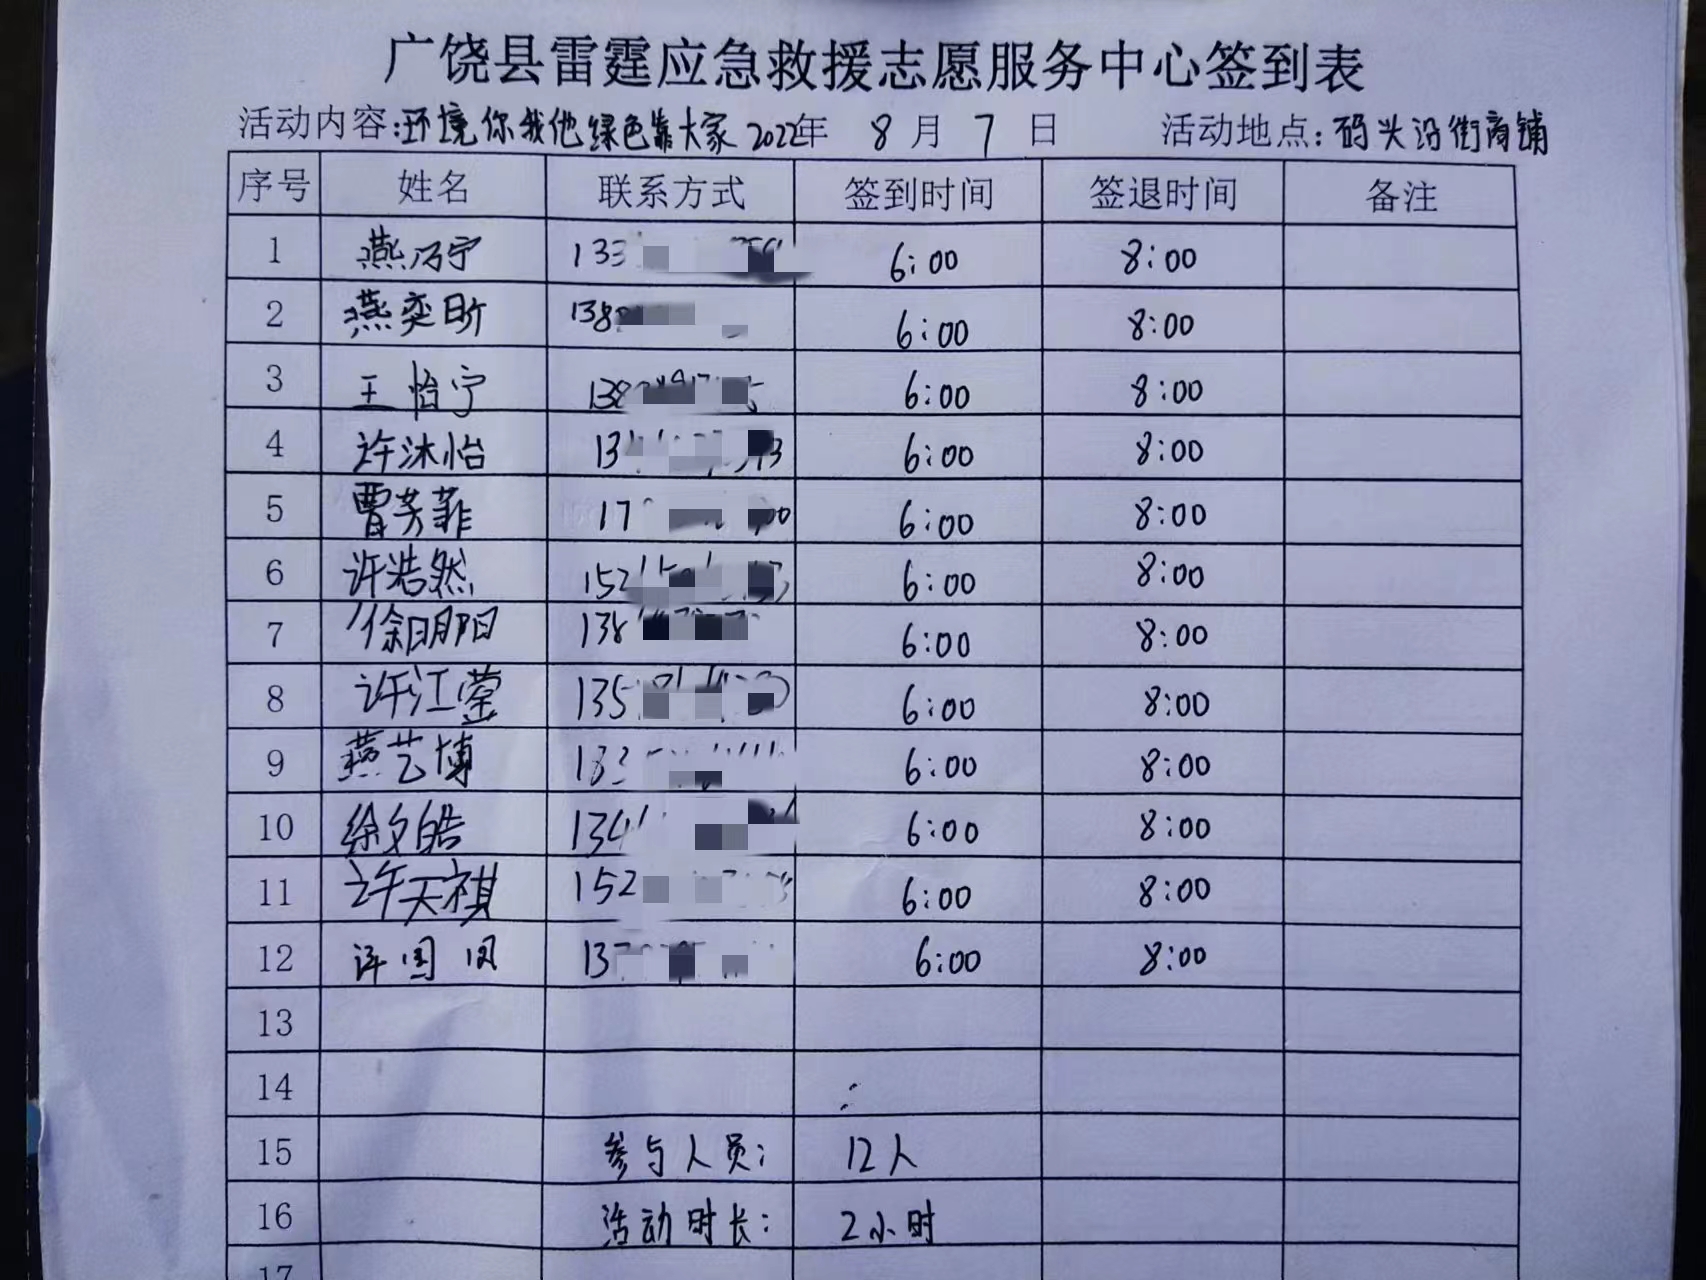 广饶县雷霆应急救援志愿服务中心签到表
活动内容:环境你我他绿色靠大家 2022年 8 月 7 日 活动地点:码头沿街商铺
序号 姓名 联系方式 签到时间 签退时间 备注
1 燕乃宁 133 6:00 8:00
2 燕奕昕 138 6:00 8:00
3 王怡宁 138 6:00 8:00
4 许沐怡 13 6:00 8:00
5 曹芳菲 17 6:00 8:00
6 许浩然 152 6:00 8:00
7 徐明阳 138 6:00 8:00
8 许江莹 135 6:00 8:00
9 燕艺博 133 6:00 8:00
10 徐文皓 134 6:00 8:00
11 许天祺 152 6:00 8:00
12 许国 13 6:00 8:00
13
14
15 参与人员: 12人
16 活动时长: 2小时
17